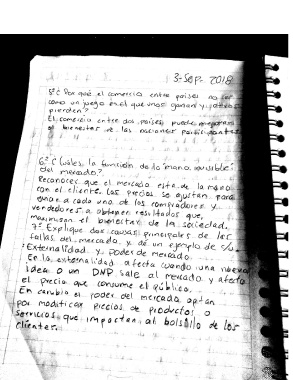 3-Sep- 2018
5° ¿Por qué el comercio entre países no es
como un juego en el que unos ganan y otros
pierden?
El comercio entre dos países puede mejorar
el bienestar de las naciones participantes
6° ¿Cuál es la función de la "mano invisible"
del mercado?
Reconocer que el mercado esta de la mano
con el cliente. Los precios se ajustan para
guiar a cada uno de los compradores y
vendedores a obtener resultados que,
maximizan el bienestar de la sociedad.
7° Explique dos causas principales de las
fallas del mercado y de un ejemplo de c/u
Externalidad y poder de mercado.
En la externalidad afecta cuando una nueva
idea o un sale al mercado y afecta
el precio que consume el público.
En cambio el poder del mercado optan
por modificar precios de productos o
servicios que impactan al bolsillo de los
clientes.